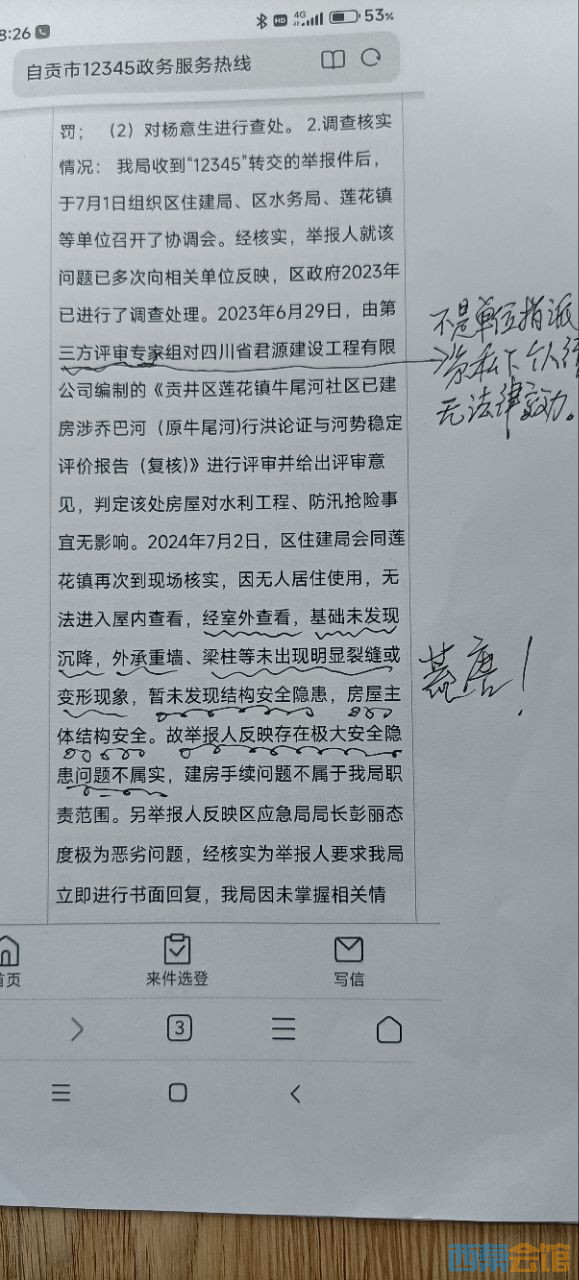 8:26
4G
HD
53%
自贡市12345政务服务热线
罚；（2）对杨意生进行查处。 2.调查核实
情况： 我局收到“12345”转交的举报件后，
于7月1日组织区住建局、区水务局、莲花镇
等单位召开了协调会。经核实，举报人就该
问题已多次向相关单位反映，区政府2023年
已进行了调查处理。2023年6月29日，由第
三方评审专家组对四川省君源建设工程有限
公司编制的《贡井区莲花镇牛尾河社区已建
房涉乔巴河（原牛尾河)行洪论证与河势稳定
评价报告（复核)》进行评审并给出评审意
见，判定该处房屋对水利工程、防汛抢险事
宜无影响。2024年7月2日，区住建局会同莲
花镇再次到现场核实，因无人居住使用，无
法进入屋内查看，经室外查看，基础未发现
沉降，外承重墙、梁柱等未出现明显裂缝或
变形现象，暂未发现结构安全隐患，房屋主
体结构安全。故举报人反映存在极大安全隐
患问题不属实，建房手续问题不属于我局职
责范围。另举报人反映区应急局局长彭丽态
度极为恶劣问题，经核实为举报人要求我局
立即进行书面回复，我局因未掌握相关情
不是单位指派
私下个人
无法律效力。
荒唐！
首页
来件选登
写信
3
西秦会馆